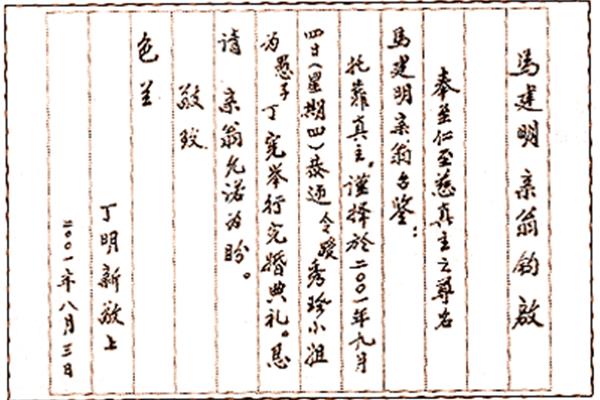 馬建明 亲翁钧啟
奉至仁至慈真主之尊名
馬建明亲翁台鉴：
托靠真主。谨择於二〇〇一年九月
四日（星期四）恭迎 令嫒秀珍小姐
为 愚子 丁宪举行完婚典礼。恳
请 亲翁允诺为盼。
敬致
色兰
丁明新敬上
二〇〇一年八月三日